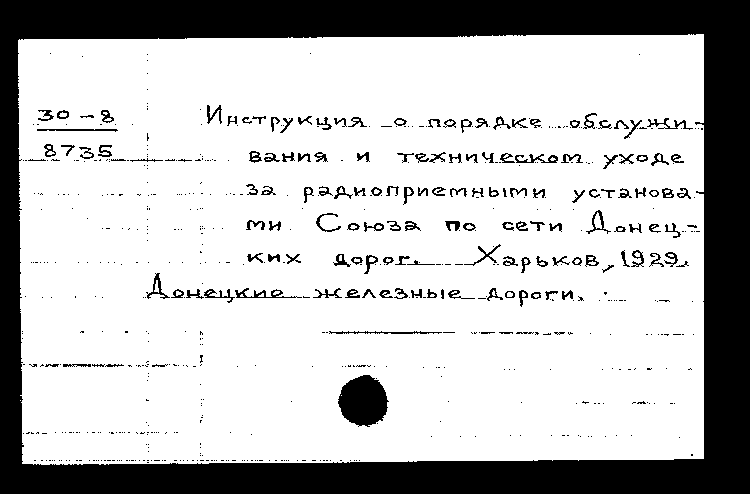 30-8
8735
Инструкция о порядке обслужи-
вания и техническом уходе
за радиоприемными установа-
ми Союза по сети Донец-
ких дорог. Харьков, 1929.
Донецкие железные дороги.